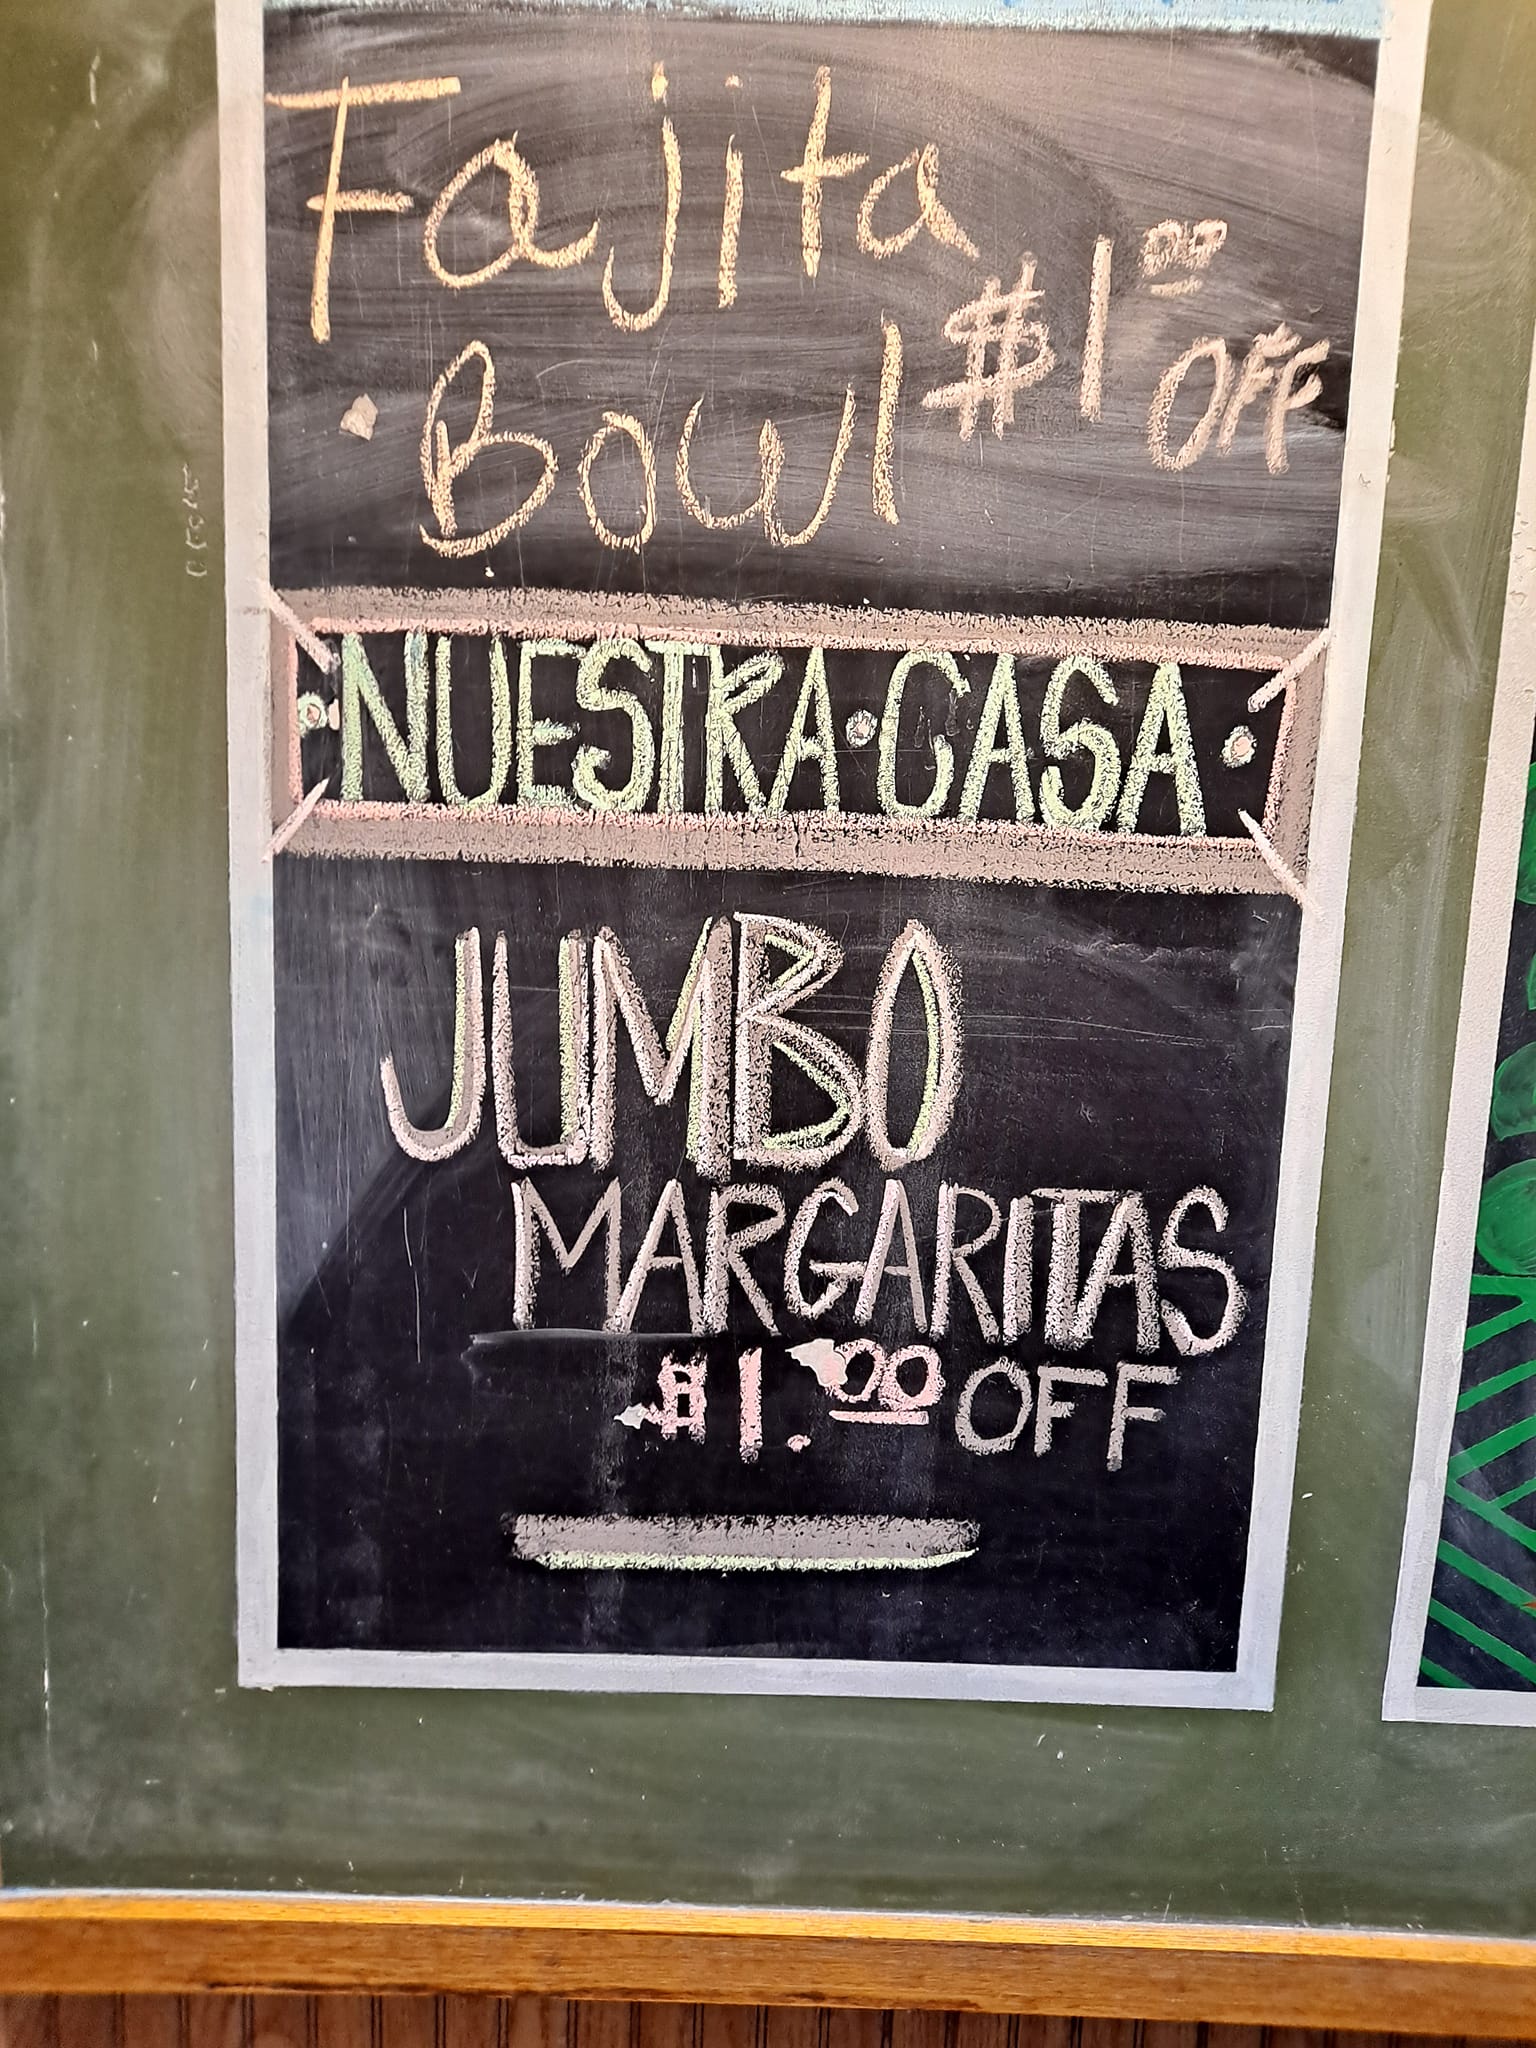 Fajita
$1.00 OFF
Bowl
NUESTRA • CASA
JUMBO
MARGARITAS
$1.00 OFF